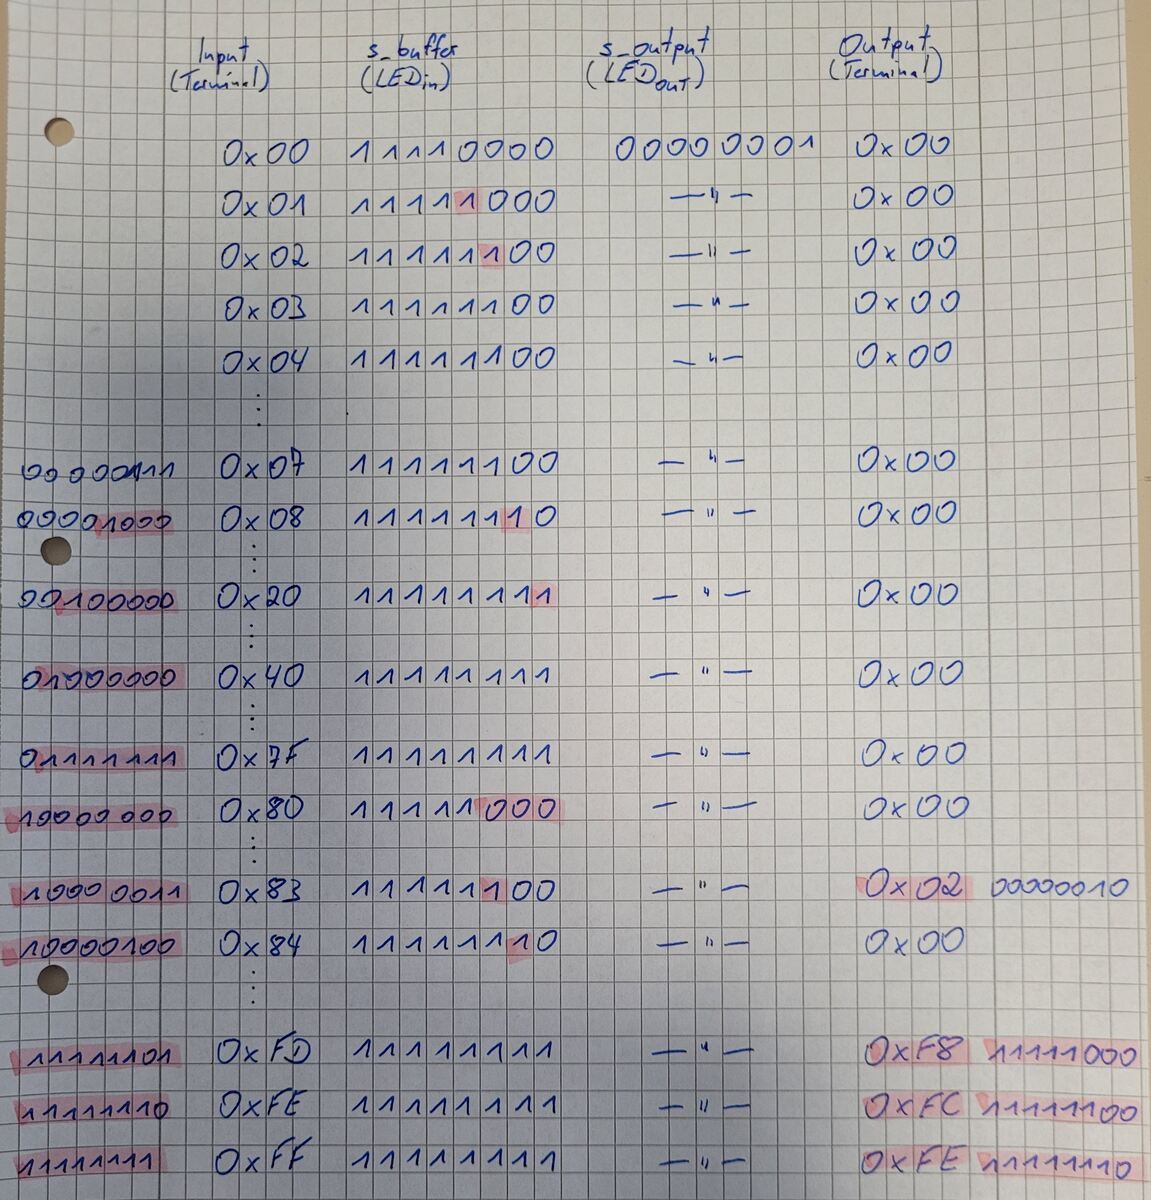 Input s_buffer s_output Output
(Terminal) (LEDin) (LEDOUT) (Terminal)
0x00 11110000 00000001 0x00
0x01 11111000 —"— 0x00
0x02 11111100 —"— 0x00
0x03 11111100 —"— 0x00
0x04 11111100 —"— 0x00
⋮
00000111 0x07 11111100 —"— 0x00
00001000 0x08 11111110 —"— 0x00
⋮
00100000 0x20 11111111 —"— 0x00
⋮
01000000 0x40 11111111 —"— 0x00
⋮
01111111 0x7F 11111111 —"— 0x00
10000000 0x80 11111000 —"— 0x00
⋮
10000011 0x83 11111100 —"— 0x02 00000010
10000100 0x84 11111110 —"— 0x00
⋮
11111101 0xFD 11111111 —"— 0xF8 11111000
11111110 0xFE 11111111 —"— 0xFC 11111100
11111111 0xFF 11111111 —"— 0xFE 11111110